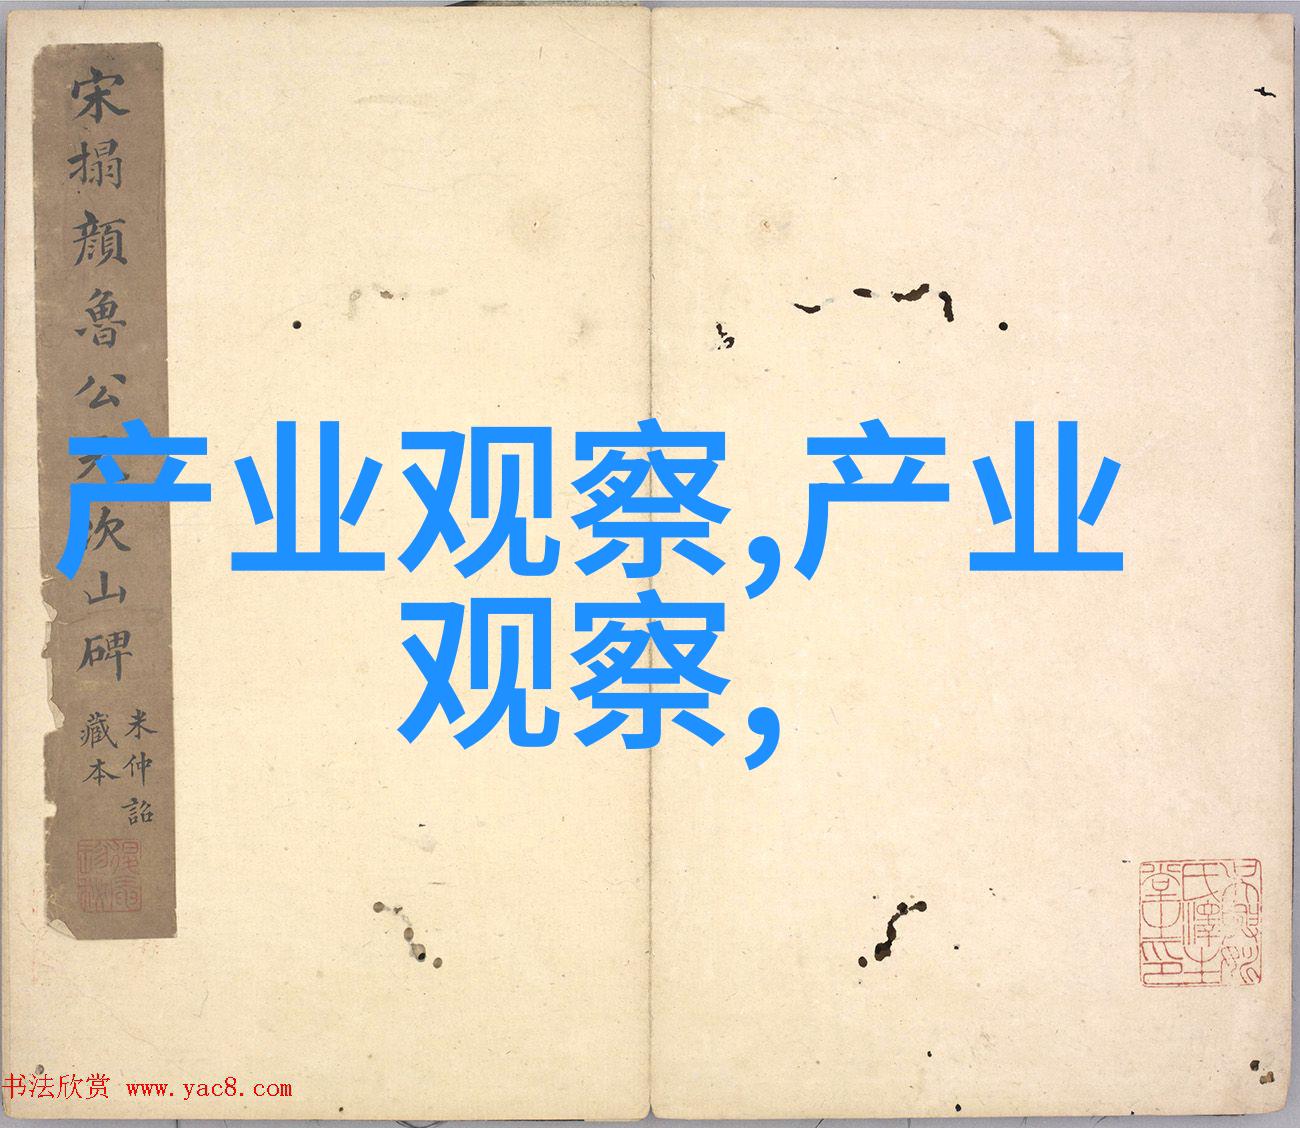 宋搨顔魯公元次山碑
米仲詔
藏本
产业观察,产业
观察,
书法欣赏 www.yac8.com